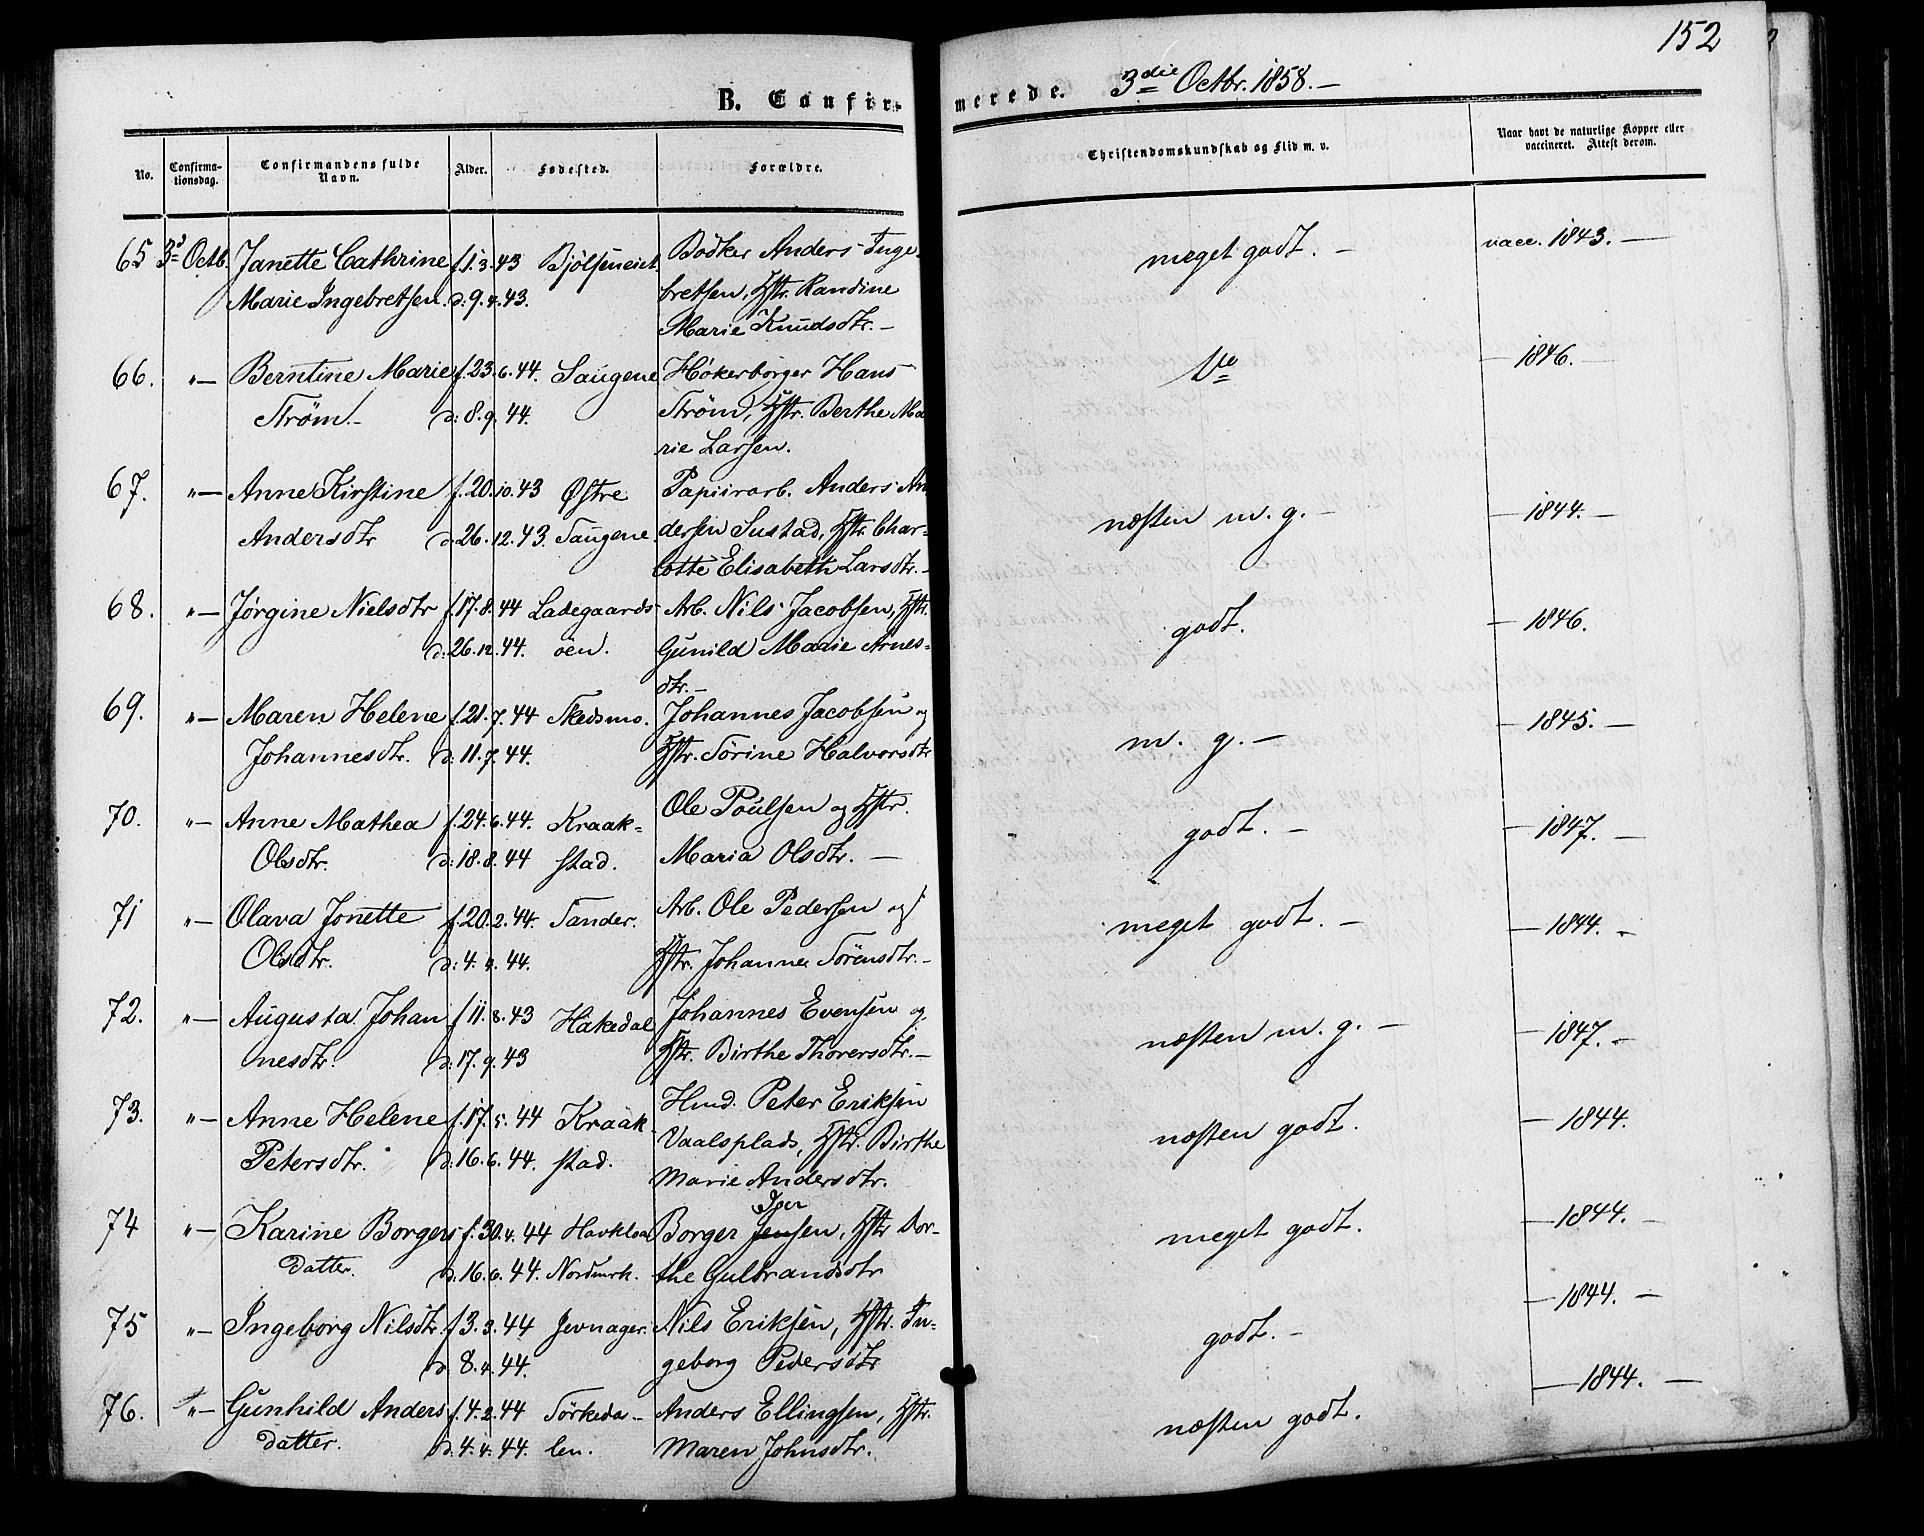 152
B. Confirmerede. 3die Octbr. 1858.-
No. Confirmationsdag. Confirmandens fulde Navn. Alder. Fødested. Forældre. Christendomskundskab og Flid m. v. Naar havt de naturlige Kopper eller vaccineret. Attest derom.
65 3d Octb. Janette Cathrine f. 1.3.43 Bjölseneiet Bödker Anders Inge- meget godt. - vacc. 1843. -
Marie Ingebretsen. d: 9.4.43. bretsen, Hstr. Randine
Marie Knudsdtr. -
66. "- Berntine Marie f. 23.6.44. Saugene Høkerborger Hans Do - 1846. -
Strøm. - d: 8.9.44. Strøm, Hstr. Berthe Ma
rie Larsen.
67. "- Anne Kirstine f. 20.10.43 Østre Papiirarb. Anders An næsten m. g. - - 1844. -
Andersdtr d: 26.12.43. Saugene. dersen Sustad, Hstr. Char-
lotte Elisabeth Larsdtr. -
68. "- Jørgine Nielsdtr f. 17.8.44 Ladegaards- Arb. Nils Jacobsen, Hstr. godt. - 1846.
d: 26.12.44. öen. Gunild Marie Arnes-
dtr. -
69. "- Maren Helene f. 21.7.44 Skedsmo. Johannes Jacobsen og m. g. - - 1845. -
Johannesdtr. d: 11.7.44. Hstr. Sörine Halvorsdtr
70. "- Anne Mathea f. 24.6.44. Kraak- Ole Poulsen og Hstr. godt. - - 1847. -
Olsdtr. d: 18.8.44 stad. Maria Olsdtr. -
71 "- Olava Jonette f. 20.2.44. Sander. Arb. Ole Pedersen og meget godt. - - 1844. -
Olsdtr. d: 4.4.44. Hstr. Johanne Sörensdtr. -
72. "- Augusta Johan f 11.8.43 Hakedal Johannes Evensen og næsten m. g. - - 1847. -
nesdtr. d: 17.9.43 Hstr. Birthe Thorersdtr. -
73. "- Anne Helene f. 17.5.44 Kraak- Hmd. Peter Eriksen næsten godt. - 1844.
Petersdtr. d: 16.6.44. stad. Vaalsplads, Hstr. Birthe
Marie Andersdtr.
Iver
74 "- Karine Borgers- f. 30.4.44 Borger Jensen, Hstr Dor- meget godt. - 1844. -
datter. d: 16.6.44. Nordmrk. the Gulbrandsdtr
75 "- Ingeborg Nilsdtr. f 3.3.44 Jevnager. Nils Eriksen, Hstr. In- godt. - - 1844. -
d. 8.4.44. geborg Pedersdtr
76. "- Gunhild Anders f. 4.2.44 Sörkeda- Anders Ellingsen, Hstr. næsten godt. - 1844. -
datter. d. 4.4.44. len. Maren Johnsdtr.